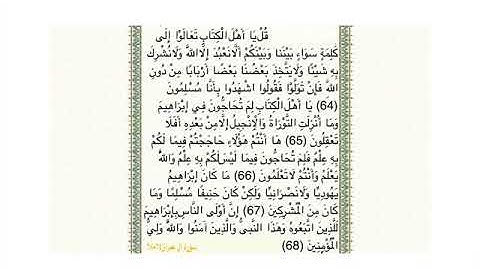 قُلْ يَا أَهْلَ الْكِتَابِ تَعَالَوْا إِلَى
كَلِمَةٍ سَوَاءٍ بَيْنَنَا وَبَيْنَكُمْ أَلَّا نَعْبُدَ إِلَّا اللَّهَ وَلَا نُشْرِكَ
بِهِ شَيْئًا وَلَا يَتَّخِذَ بَعْضُنَا بَعْضًا أَرْبَابًا مِنْ دُونِ
اللَّهِ فَإِنْ تَوَلَّوْا فَقُولُوا اشْهَدُوا بِأَنَّا مُسْلِمُونَ
(64) يَا أَهْلَ الْكِتَابِ لِمَ تُحَاجُّونَ فِي إِبْرَاهِيمَ
وَمَا أُنْزِلَتِ التَّوْرَاةُ وَالْإِنْجِيلُ إِلَّا مِنْ بَعْدِهِ أَفَلَا
تَعْقِلُونَ (65) هَا أَنْتُمْ هَؤُلَاءِ حَاجَجْتُمْ فِيمَا لَكُمْ
بِهِ عِلْمٌ فَلِمَ تُحَاجُّونَ فِيمَا لَيْسَ لَكُمْ بِهِ عِلْمٌ وَاللَّهُ
يَعْلَمُ وَأَنْتُمْ لَا تَعْلَمُونَ (66) مَا كَانَ إِبْرَاهِيمُ
يَهُودِيًّا وَلَا نَصْرَانِيًّا وَلَكِنْ كَانَ حَنِيفًا مُسْلِمًا وَمَا
كَانَ مِنَ الْمُشْرِكِينَ (67) إِنَّ أَوْلَى النَّاسِ بِإِبْرَاهِيمَ
لَلَّذِينَ اتَّبَعُوهُ وَهَذَا النَّبِيُّ وَالَّذِينَ آمَنُوا وَاللَّهُ وَلِيُّ
الْمُؤْمِنِينَ (68)
سورة آل عمران